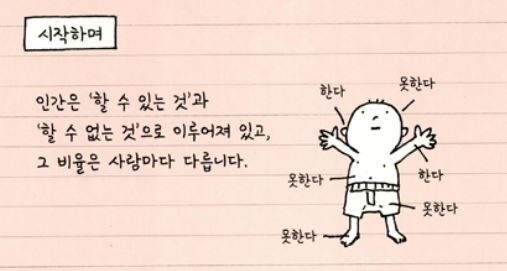 시작하며
인간은 '할 수 있는 것'과
'할 수 없는 것'으로 이루어져 있고,
그 비율은 사람마다 다릅니다.
한다
못한다
못한다
한다
못한다
못한다